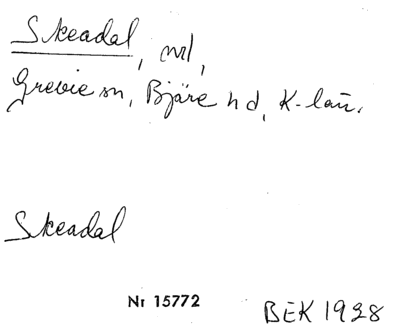 Skeadal, nrl,
Grevie sn, Bjäre hd, K-län.
Skeadal
Nr 15772
BEK 1928